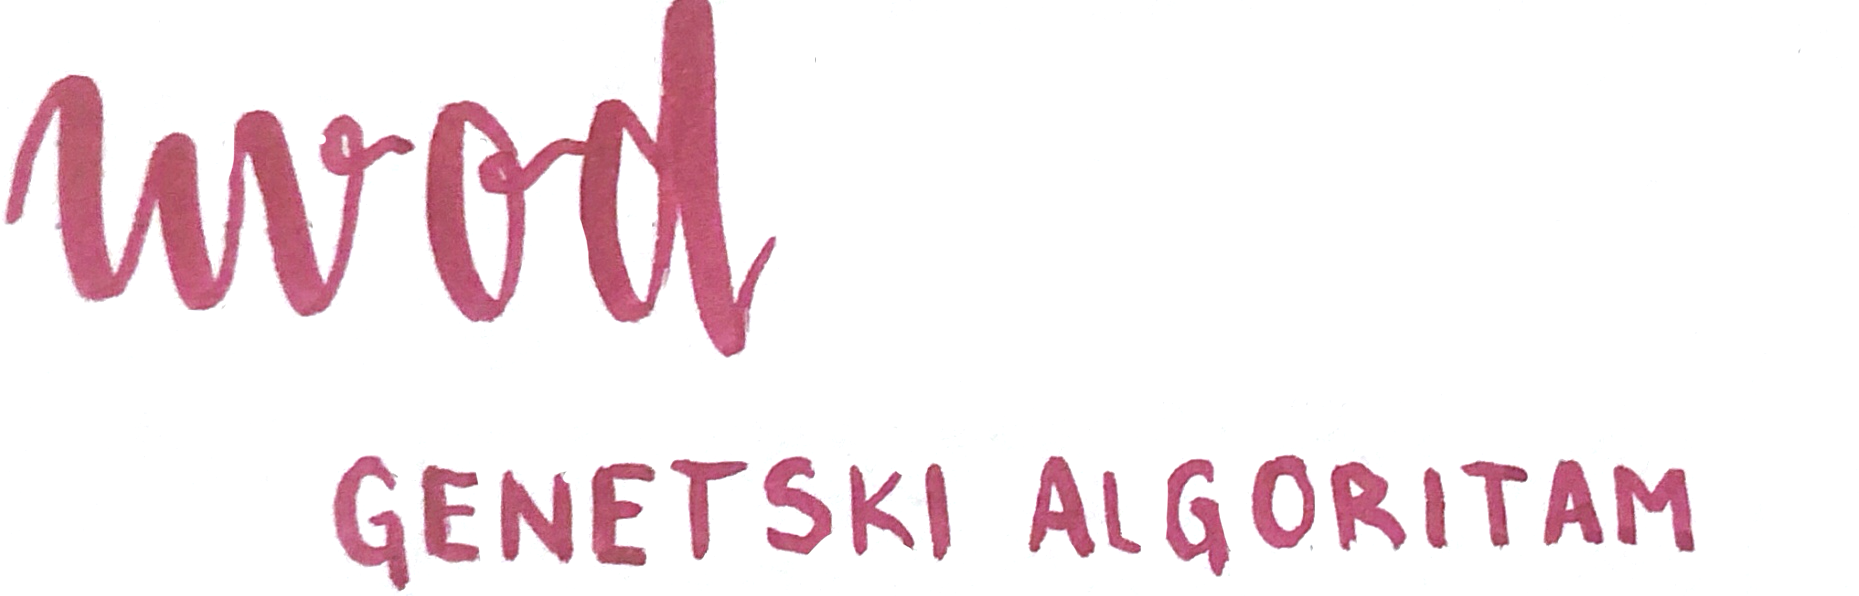 uvod
GENETSKI ALGORITAM